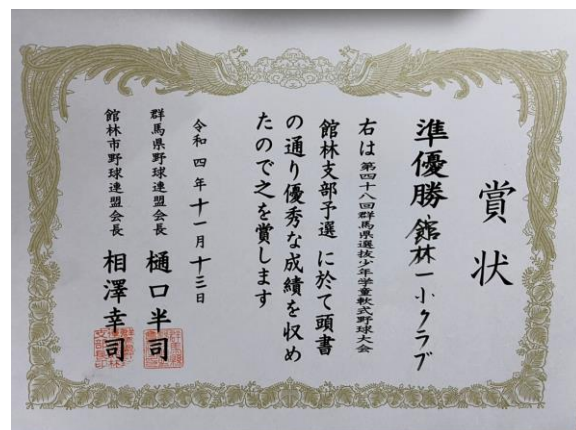 賞状
準優勝 館林一小クラブ
右は第四十八回群馬県選抜少年学童軟式野球大会
館林支部予選 に於て頭書
の通り優秀な成績を収め
たので之を賞します
令和四年十一月十三日
群馬県野球連盟会長 樋口半司
館林市野球連盟会長 相澤幸司